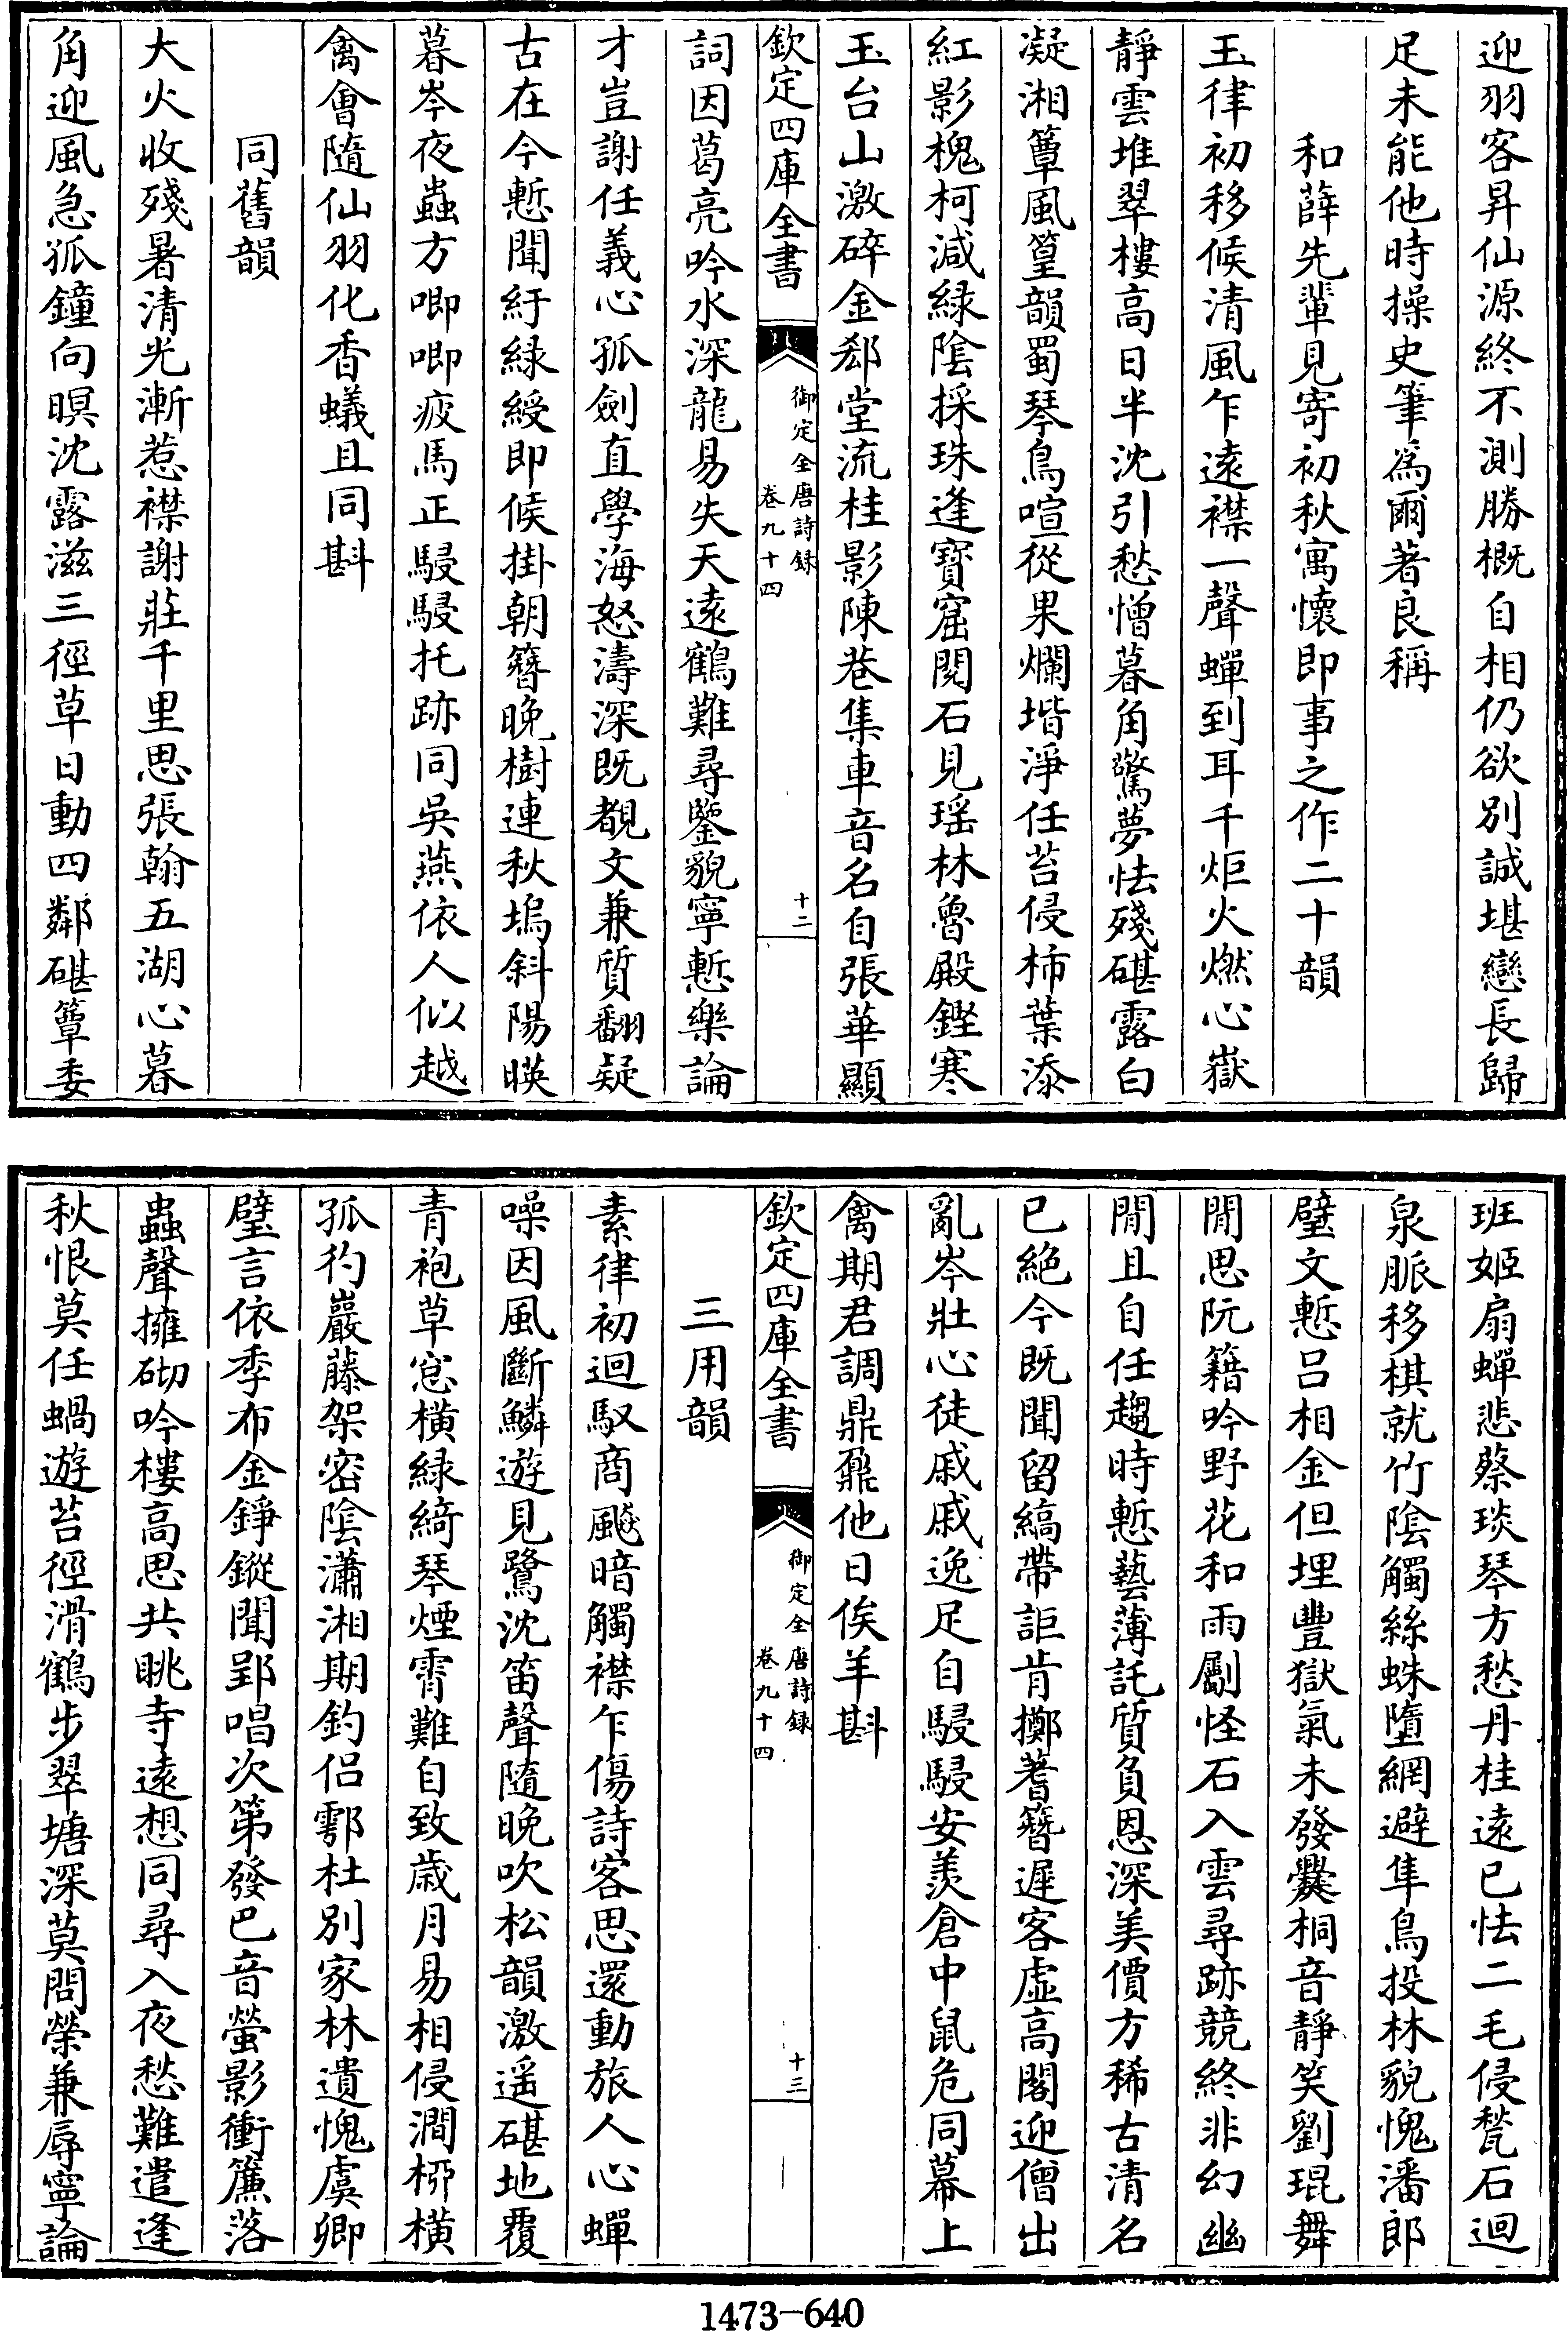 迎羽客昇仙源終不測勝概自相仍欲別誠堪戀長歸
足未能他時操史筆為爾著良稱
和薛先輩見寄初秋寓懷即事之作二十韻
玉律初移候清風乍遠襟一聲蟬到耳千炬火燃心嶽
靜雲堆翠樓高日半沈引愁憎暮角驚夢怯殘碪露白
凝湘簟風篁韻蜀琴鳥喧從果爛堦淨任苔侵柿葉添
紅影槐柯減緑陰採珠逢寶窟閱石見瑶林魯殿鏗寒
玉台山激碎金郄堂流桂影陳巷集車音名自張華顯
欽定四庫全書
御定全唐詩録
卷九十四
十二
詞因葛亮吟水深龍易失天遠鶴難尋鑒貌寧慙樂論
才豈謝任義心孤劍直學海怒濤深既覩文兼質翻疑
古在今慙聞紆緑綬即候掛朝簪晚樹連秋塢斜陽暎
暮岑夜蟲方唧唧疲馬正駸駸托跡同吳燕依人似越
禽會隨仙羽化香蟻且同斟
同舊韻
大火收殘暑清光漸惹襟謝莊千里思張翰五湖心暮
角迎風急孤鐘向暝沈露滋三徑草日動四鄰碪簟委
班姬扇蟬悲蔡琰琴方愁丹桂遠已怯二毛侵甃石迴
泉脈移棋就竹陰觸絲蛛墮網避隼鳥投林貌愧潘郎
璧文慙呂相金但埋豐獄氣未發爨桐音靜笑劉琨舞
閒思阮籍吟野花和雨劚怪石入雲尋跡競終非幻幽
閒且自任趨時慙藝薄託質負恩深美價方稀古清名
已絕今既聞留縞帶詎肯擲蓍簪遲客虛高閣迎僧出
亂岑壯心徒戚戚逸足自駸駸安羨倉中鼠危同幕上
禽期君調鼎鼐他日俟羊斟
欽定四庫全書
御定全唐詩録
卷九十四
十三
三用韻
素律初迴馭商飈暗觸襟乍傷詩客思還動旅人心蟬
噪因風斷鱗遊見鷺沈笛聲隨晚吹松韻激遥碪地覆
青袍草窓橫緑綺琴煙霄難自致歲月易相侵澗栁橫
孤彴巖藤架密陰瀟湘期釣侶鄠杜別家林遺愧虞卿
璧言依季布金錚鏦聞郢唱次第發巴音螢影衝簾落
蟲聲擁砌吟樓高思共眺寺遠想同尋入夜愁難遣逢
秋恨莫任蝸遊苔徑滑鶴步翠塘深莫問榮兼辱寧論
1473-640